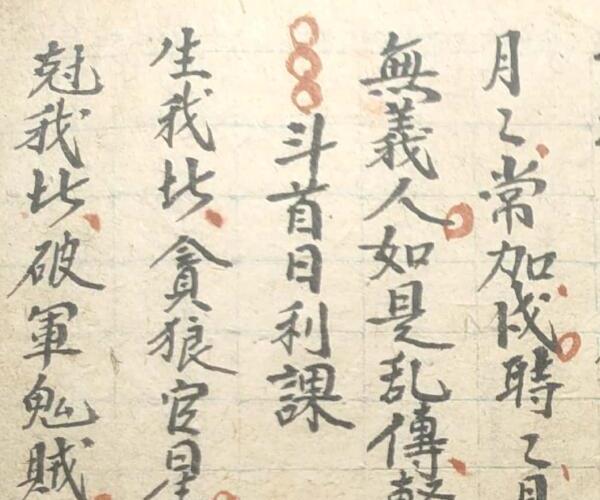 月〻常加戌時〻見
無義人如是乱傳
斗首日利課
生我比貪狼官星
尅我比破軍鬼賊